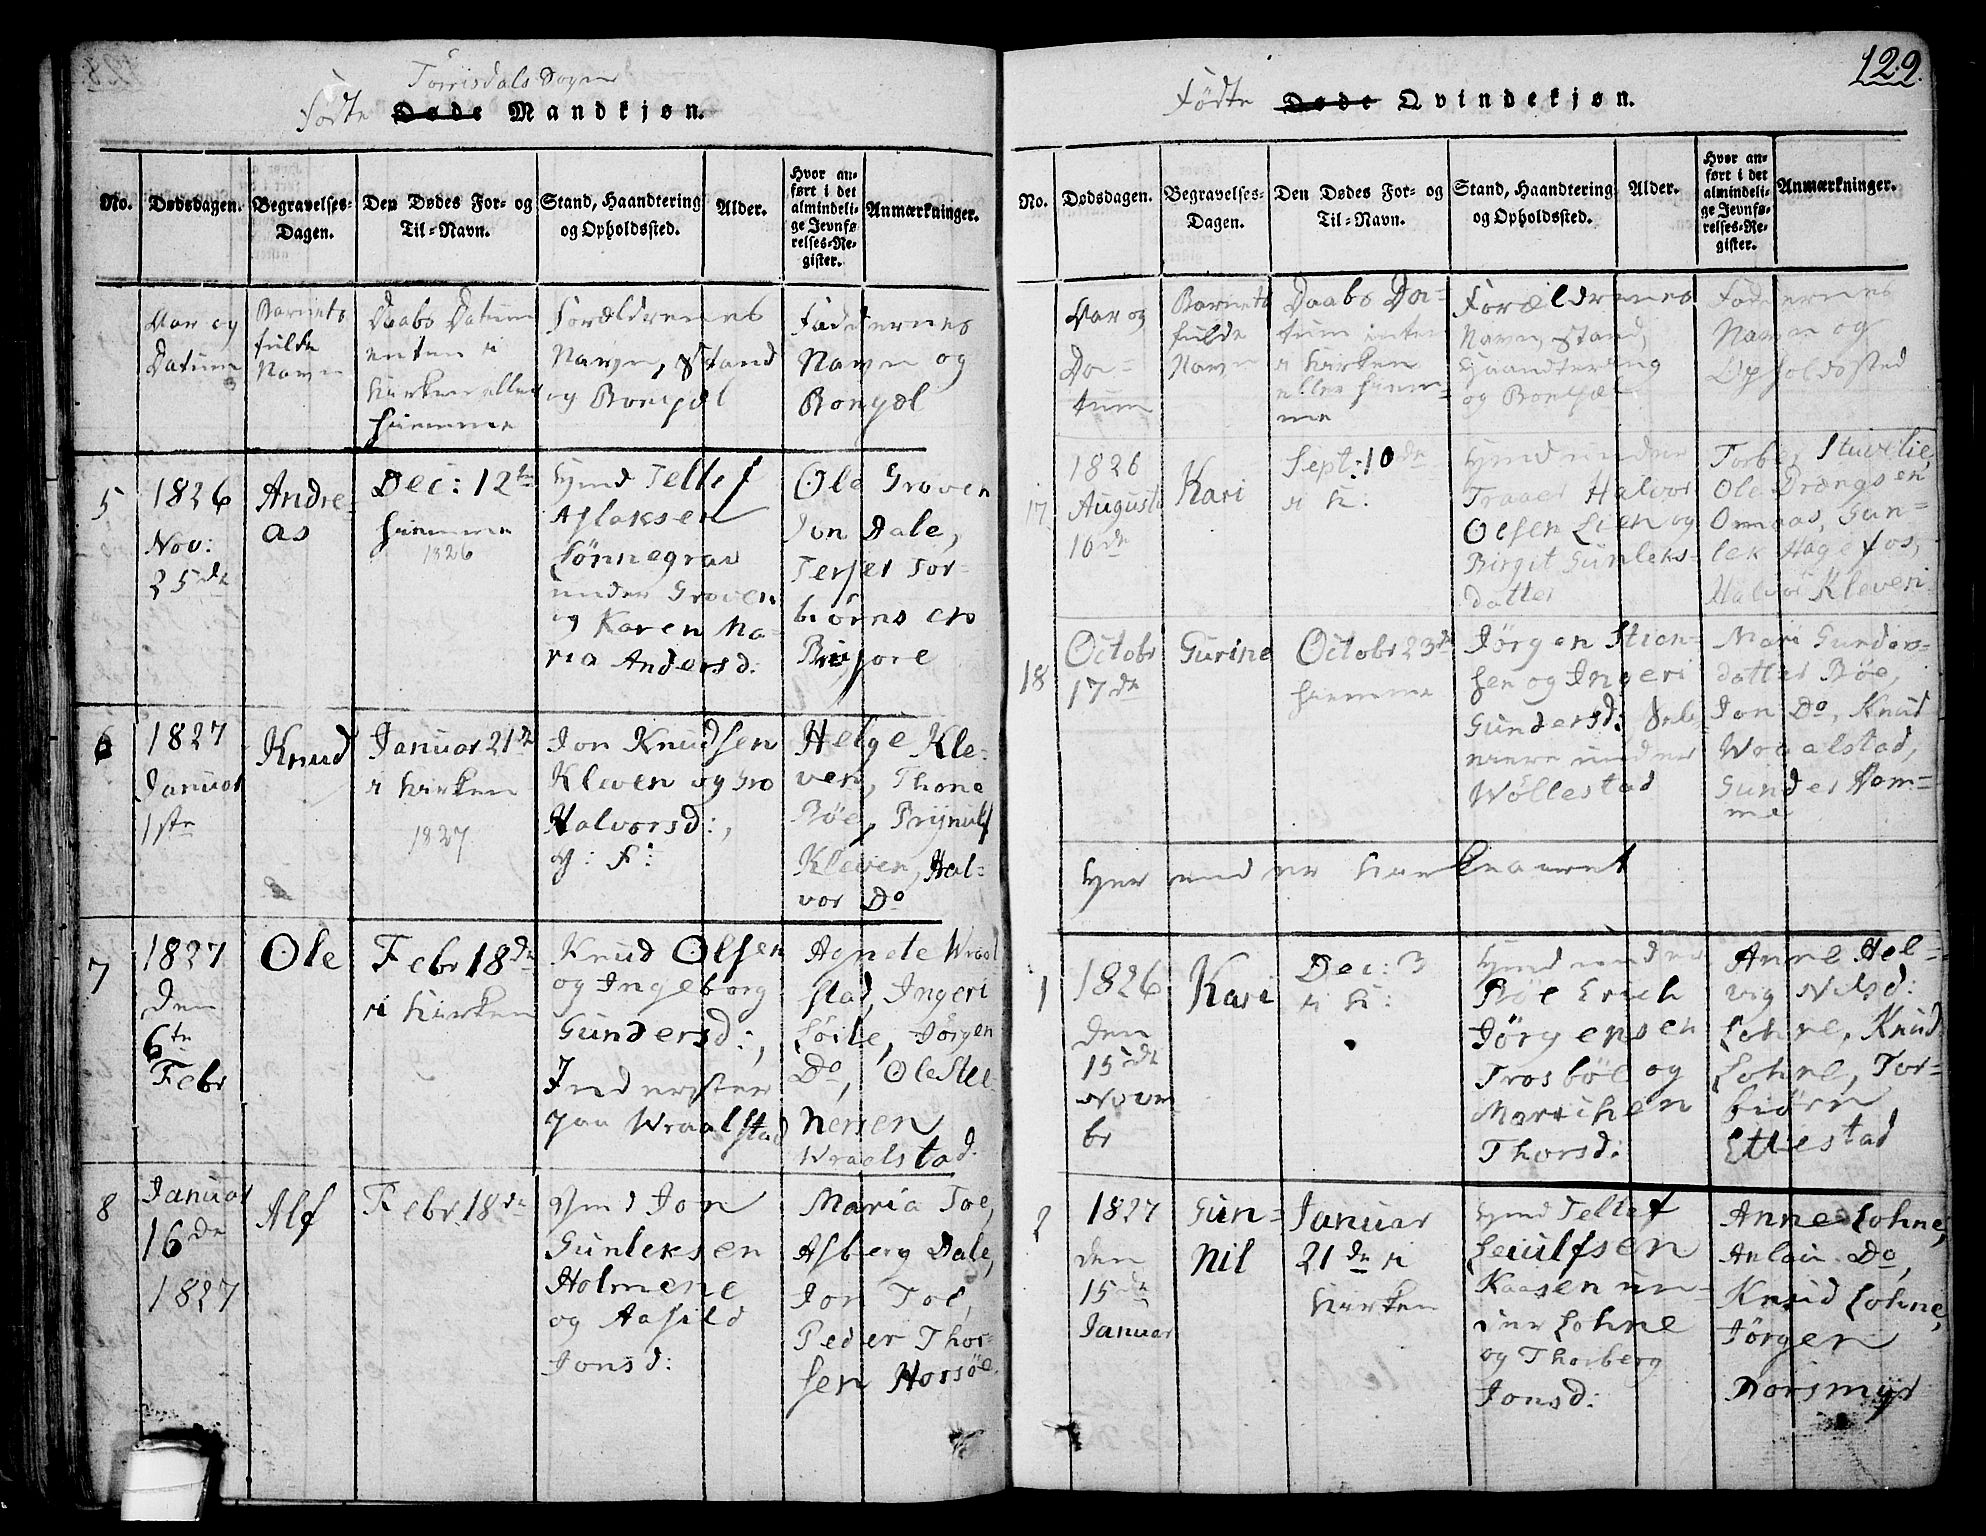 Torrisdals Sogn
Fødte Døde Mandkjøn.
No.
Dødsdagen.
Begravelses-
Dagen.
Den Dødes For- og
Til-Navn.
Stand, Haandtering
og Opholdssted.
Alder.
Hvor an-
ført i det
almindeli-
ge Jevnfø-
relses-Re-
gister.
Anmærkninger.
Aar og
Datum
Barnets
fulde
Navn
Daabs Datum
enten i
Kirken eller
hiemme
Forældrenes
Navn, Stand
og Bopæl
Faddernes
Navn og
Bopæl
5
1826
Nov:
25de
Andre-
as
Dec: 12te
hiemme
1826
Hmd Tellef
Aslaksen
Sønnegrav
under Groven
og Karen Ma-
ria Andersd:
Ole Groven
Jon Dale,
Terjer Tor-
biørnsen
6
1827
Januar
1ste
Knud
Januar 21de
i Kirken
1827
Jon Knudsen
Kleven og Gro
Halvorsd:,
g: f:
Helge Kle-
ven, Thone
Bøe, Brynulf
Kleven, Hal-
vor Do
7
1827
den
6te
Febr
Ole
Febr 18de
i Kirken
Knud Olsen
og Ingeborg
Gundersd:,
Inderster
paa Wraalstad
Agnete Wraal
stad, Ingeri
Do, Ole Ste-
nersen
Wraalstad
8
Januar
16de
1827
Alf
Febr. 18de
Hmd Jon
Gunleksen
Holmene
og Aasild
Jonsd:
Maria Toe,
Asberg Dale,
Jon Toe,
Peder Thor-
sen Horsøe
129.
Fødte Døde Qvindekjøn.
No.
Dødsdagen.
Begravelses-
Dagen.
Den Dødes For- og
Til-Navn.
Stand, Haandtering
og Opholdssted.
Alder.
Hvor an-
ført i det
almindeli-
ge Jevnfø-
relses-Re-
gister.
Anmærkninger.
Aar og
Da-
tum
Barnets
fulde
Navn
Daabs Da-
tum enten
i Kirken
eller hiem-
me
Forældrenes
Navn, Stand,
Haandtering
og Bopæl
Faddernes
Navn og
Opholdssted
17
1826
August
10de
Kari
Sept: 10de
i K:
Hmd under
Traaer Halvor
Olsen Lien og
Birgit Gunleks-
datter
Torbr Stuvelie,
Ole Drengsen
Omaas, Gun-
lek Hagefos,
Halvor Kleveri
18
Octobr
17de
Gurine
Octobr 23de
hiemme
Jørgen Stien-
sen og Ingeri
Gundersd:
under
Wøllestad
Mari Gunders-
datter Bøe,
Jon Do, Knud
Wraalstad,
Gunder Hom-
me
Her
1
1826
den
15de
Novem
br
Kari
Dec: 3
i K:
Hmd under
Bøe Erich
Jørgensen
Trosbøe og
Marichen
Thorsd:
Anne Hel-
vig Nilsd:
Lohne, Knud
Lohne, Tor-
biørn
Ettestad
2
1827
den
15de
Januar
Gun-
nil
Januar
21de i
Kirken
Hmd Tellef
Leiulfsen
Kaasen un-
der Lohne
og Thorberg
Jonsd:
Anne Lohne,
Aslau Do,
Knud Lohne,
Jørgen
Dorsmyr